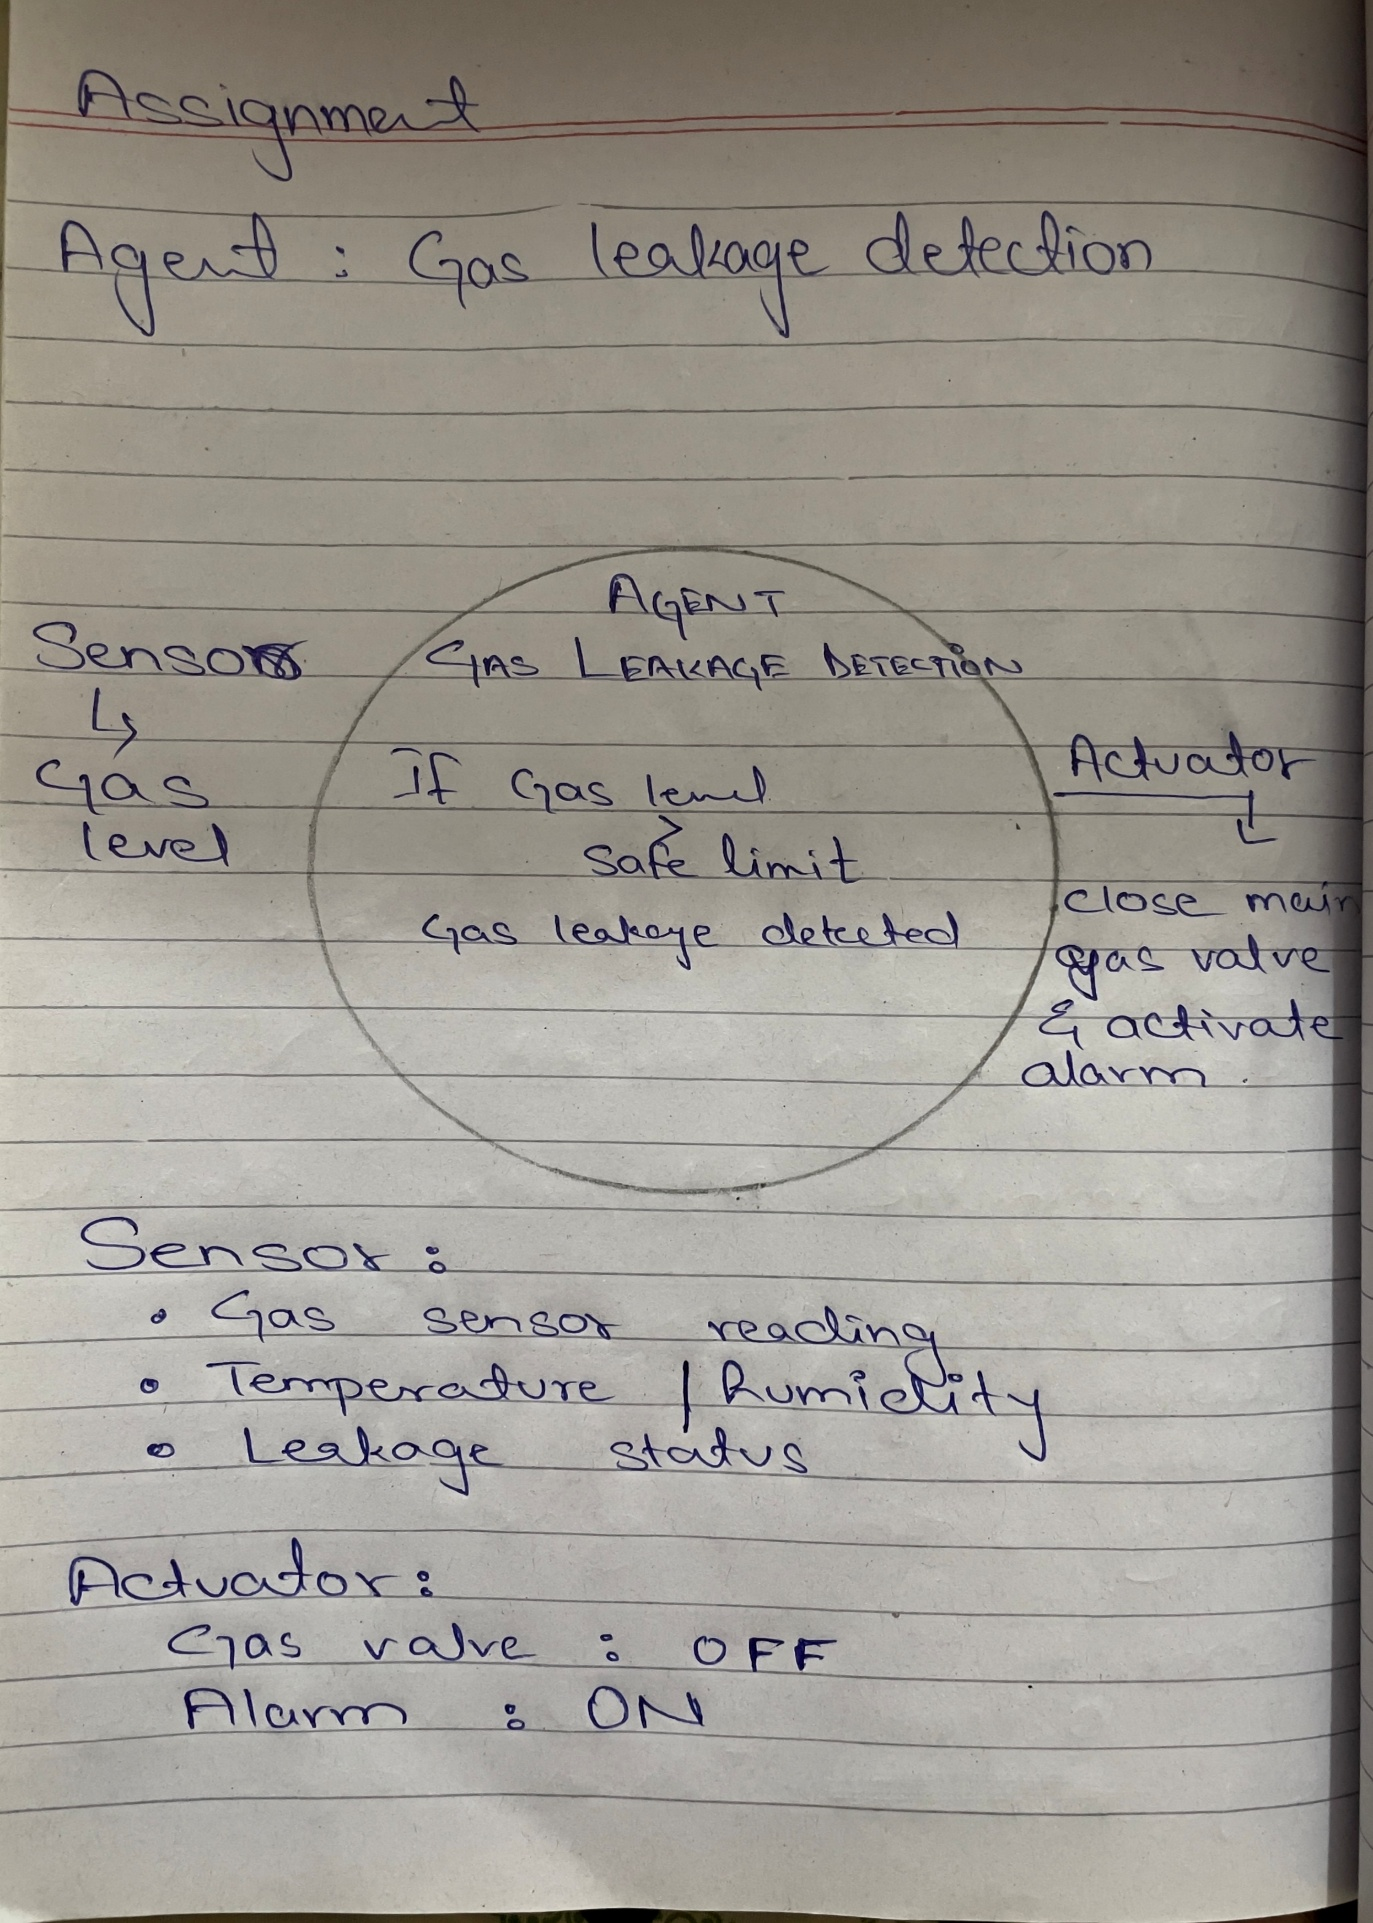 Assignment
Agent : Gas leakage detection
AGENT
GAS LEAKAGE DETECTION
Sensor
↳
Gas
level
If Gas level
>
safe limit
Gas leakage detected
Actuator
close main
gas valve
& activate
alarm.
Sensor :
• Gas sensor reading
• Temperature / humidity
• Leakage status
Actuator :
Gas valve : OFF
Alarm : ON